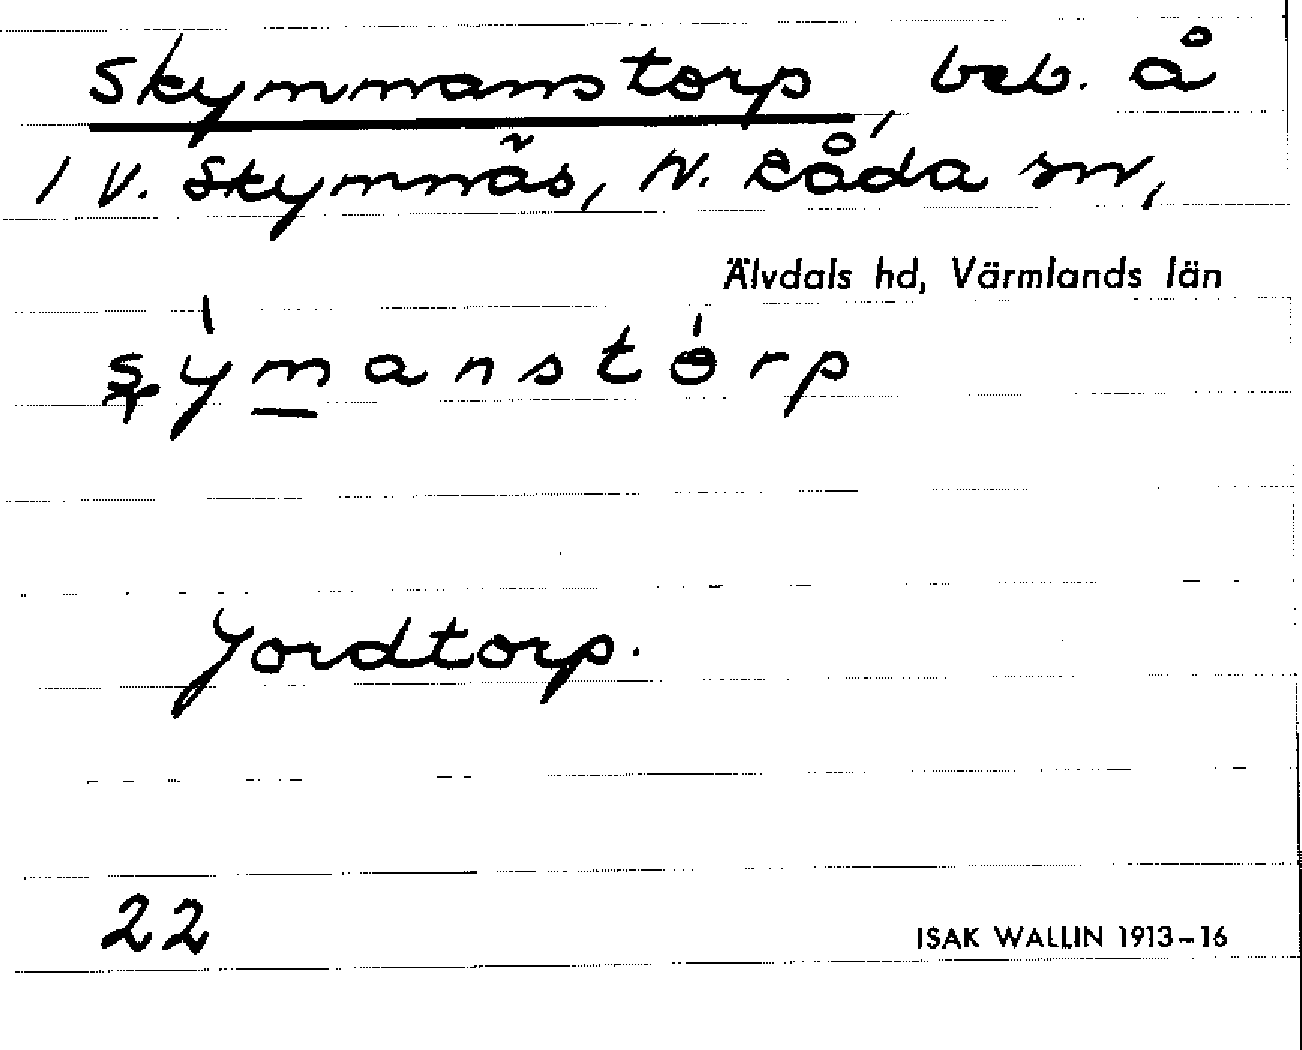 Skymmanstorp, beb. å
1 V. Skymnäs, N. Råda sn,
Älvdals hd, Värmlands län
Jordtorp.
22
ISAK WALLIN 1913–16